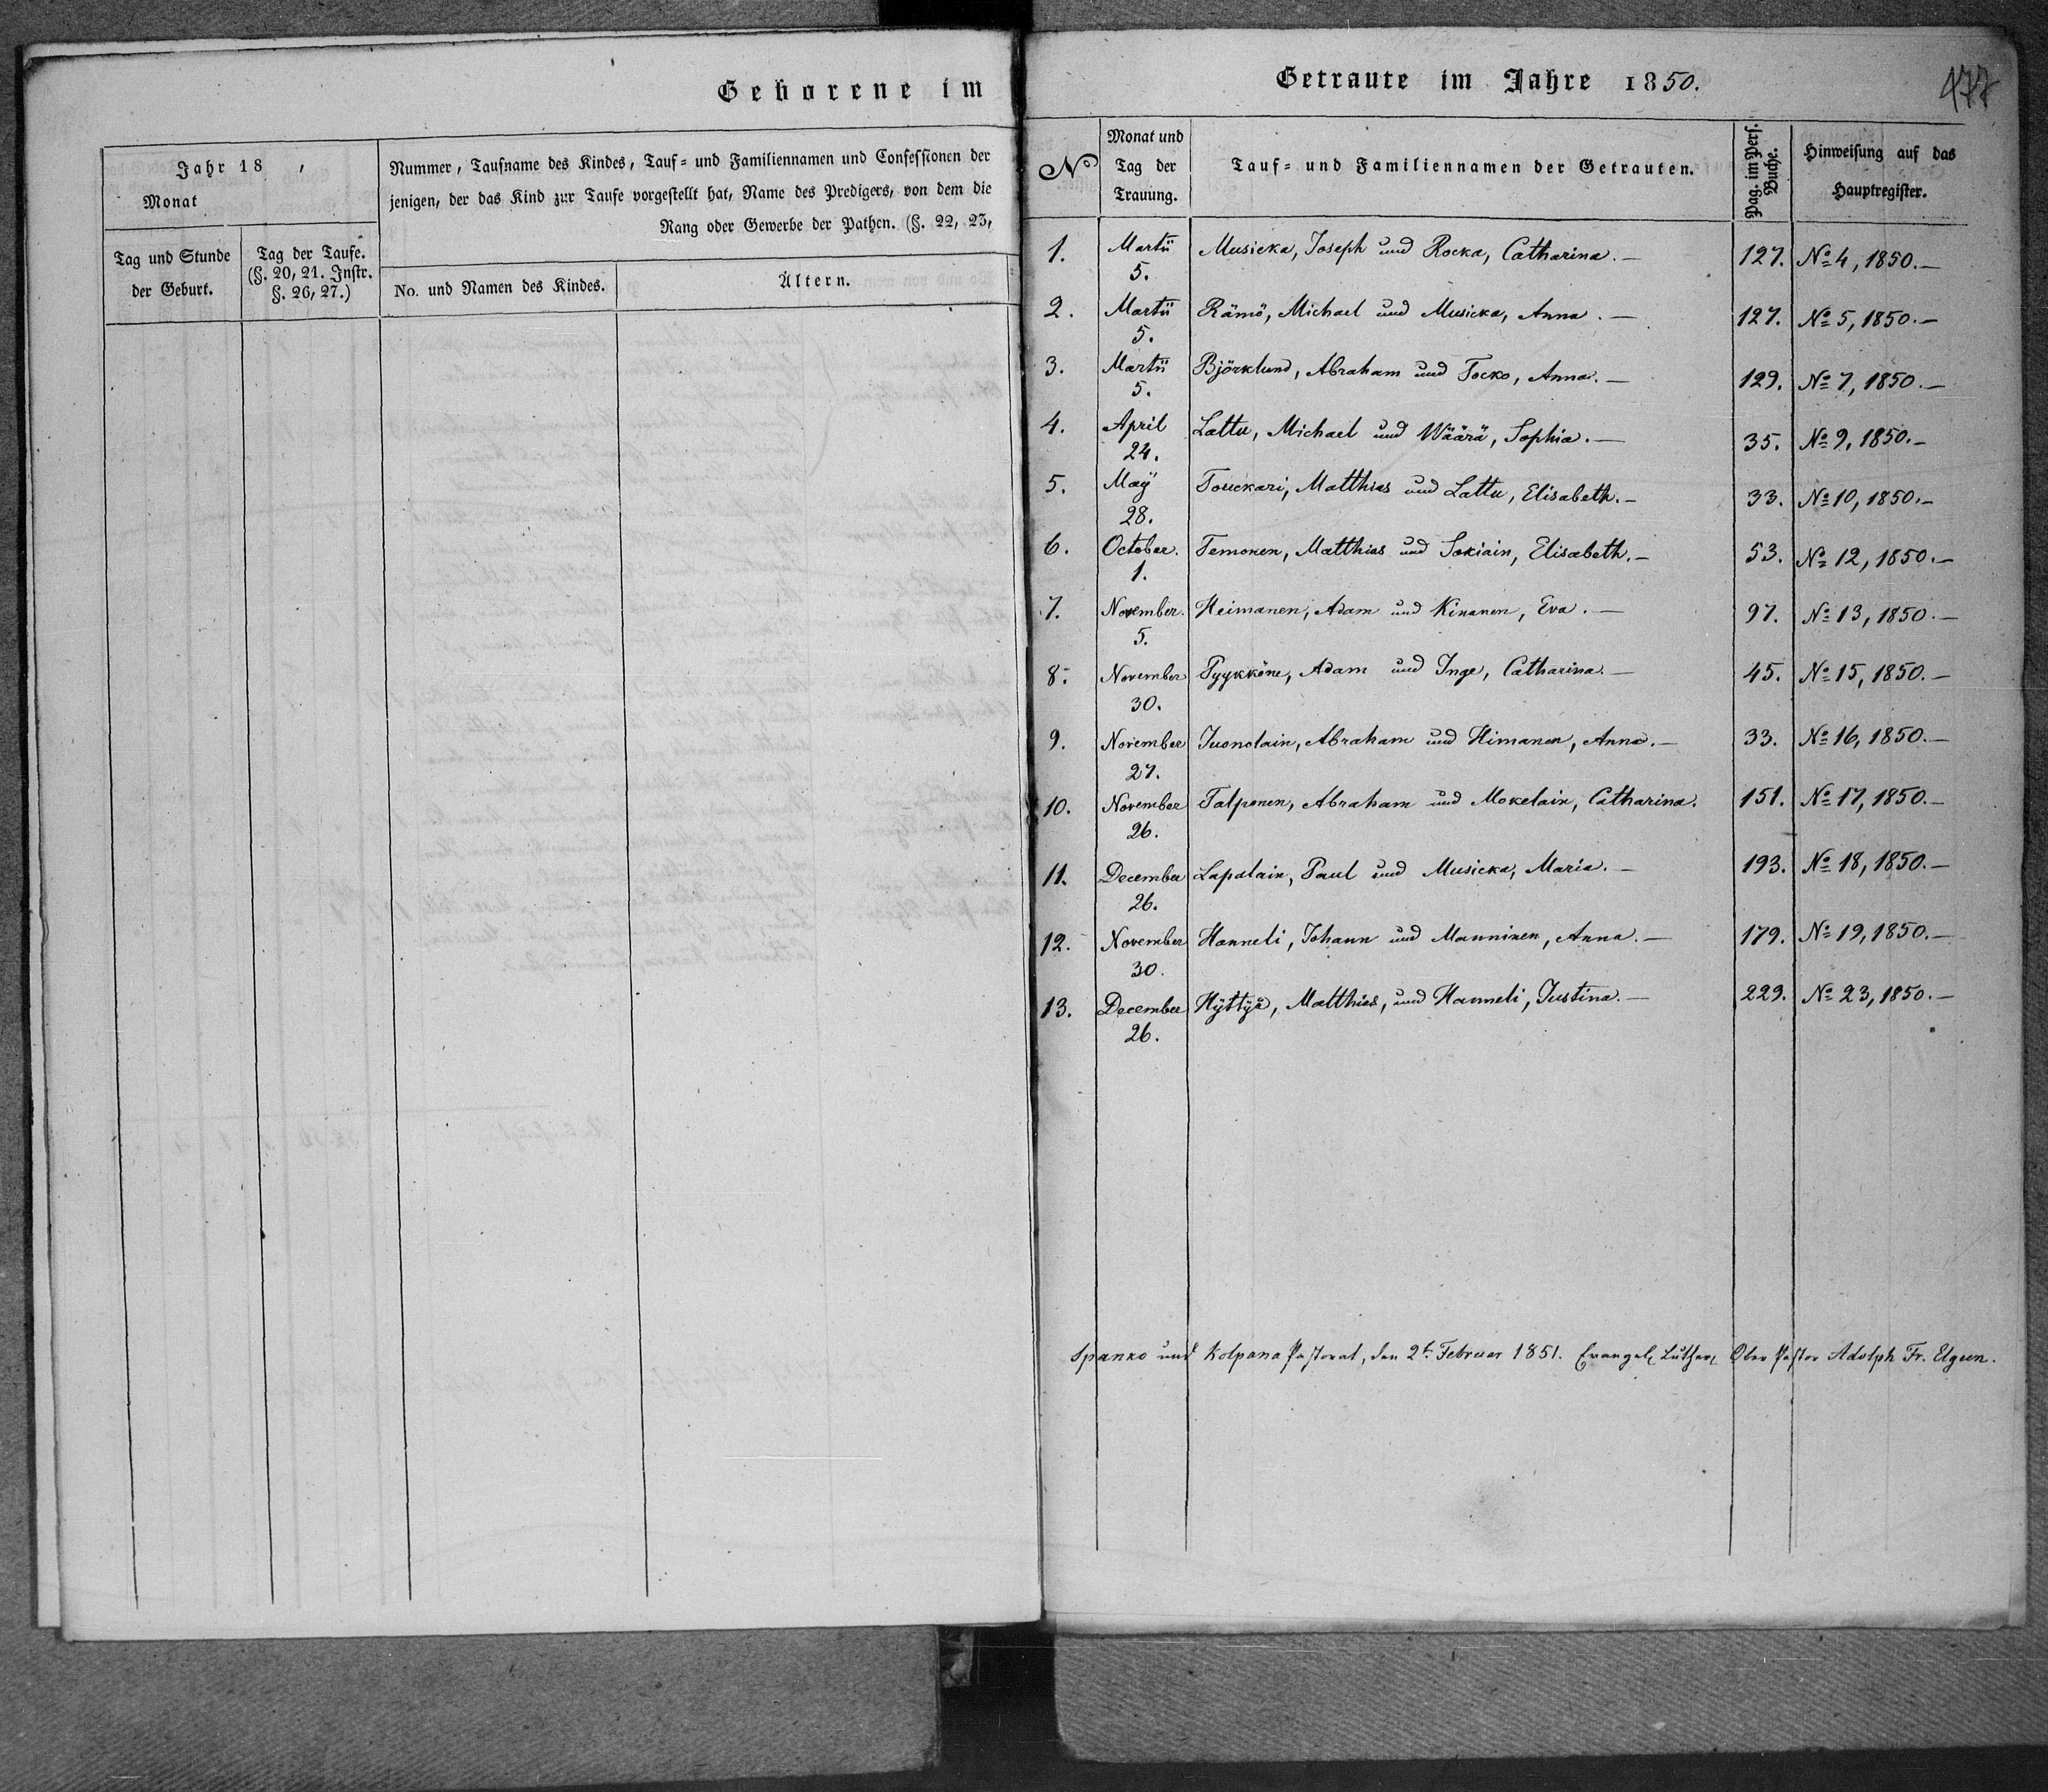 Geborene im
Jahr 18 ,
Monat
Nummer, Taufname des Kindes, Tauf- und Familiennamen und Confessionen der
jenigen, der das Kind zur Taufe vorgestellt hat, Name des Predigers, von dem die
Rang oder Gewerbe der Pathen. (§. 22, 23,
Tag und Stunde
der Geburt.
Tag der Taufe.
(§. 20, 21. Instr.
§. 26, 27.)
No. und Namen des Kindes.
Ältern.
Getraute im Jahre 1850.
477
No
Monat und
Tag der
Trauung.
Tauf- und Familiennamen der Getrauten.
Pag. im Pers.
Buche.
Hinweisung auf das
Hauptregister.
1. Martii Musicka, Joseph und Rocka, Catharina.— 127. No 4, 1850.—
5.
2. Martii Rämö, Michael und Musicka, Anna.— 127. No 5, 1850.—
5.
3. Martii Björklund, Abraham und Tocko, Anna.— 129. No 7, 1850.—
5.
4. April Lattu, Michael und Wäärä, Sophia.— 35. No 9, 1850.—
24.
5. Maÿ Touckari, Matthias und Lattu, Elisabeth.— 33. No 10, 1850.—
28.
6. October. Temonen, Matthias und Sokiain, Elisabeth.— 53. No 12, 1850.—
1.
7. November. Heimanen, Adam und Kinanen, Eva.— 97. No 13, 1850.—
5.
8. November Pyykköne, Adam und Inge, Catharina.— 45. No 15, 1850.—
30.
9. November Juonolain, Abraham und Himanen, Anna.— 33. No 16, 1850.—
27.
10. November Talponen, Abraham und Mokelain, Catharina. 151. No 17, 1850.—
26.
11. December Lapalain, Paul und Musicka, Maria.— 193. No 18, 1850.—
26.
12. November Hanneli, Johann und Manninen, Anna.— 179. No 19, 1850.—
30.
13. December Hÿttÿä, Matthias, und Hanneli, Justina.— 229. No 23, 1850.—
26.
Spanko und Kolpana Pastorat, den 2t. Februar 1851. Evangel. Luther. Ober Pastor Adolph Fr. Elgren.